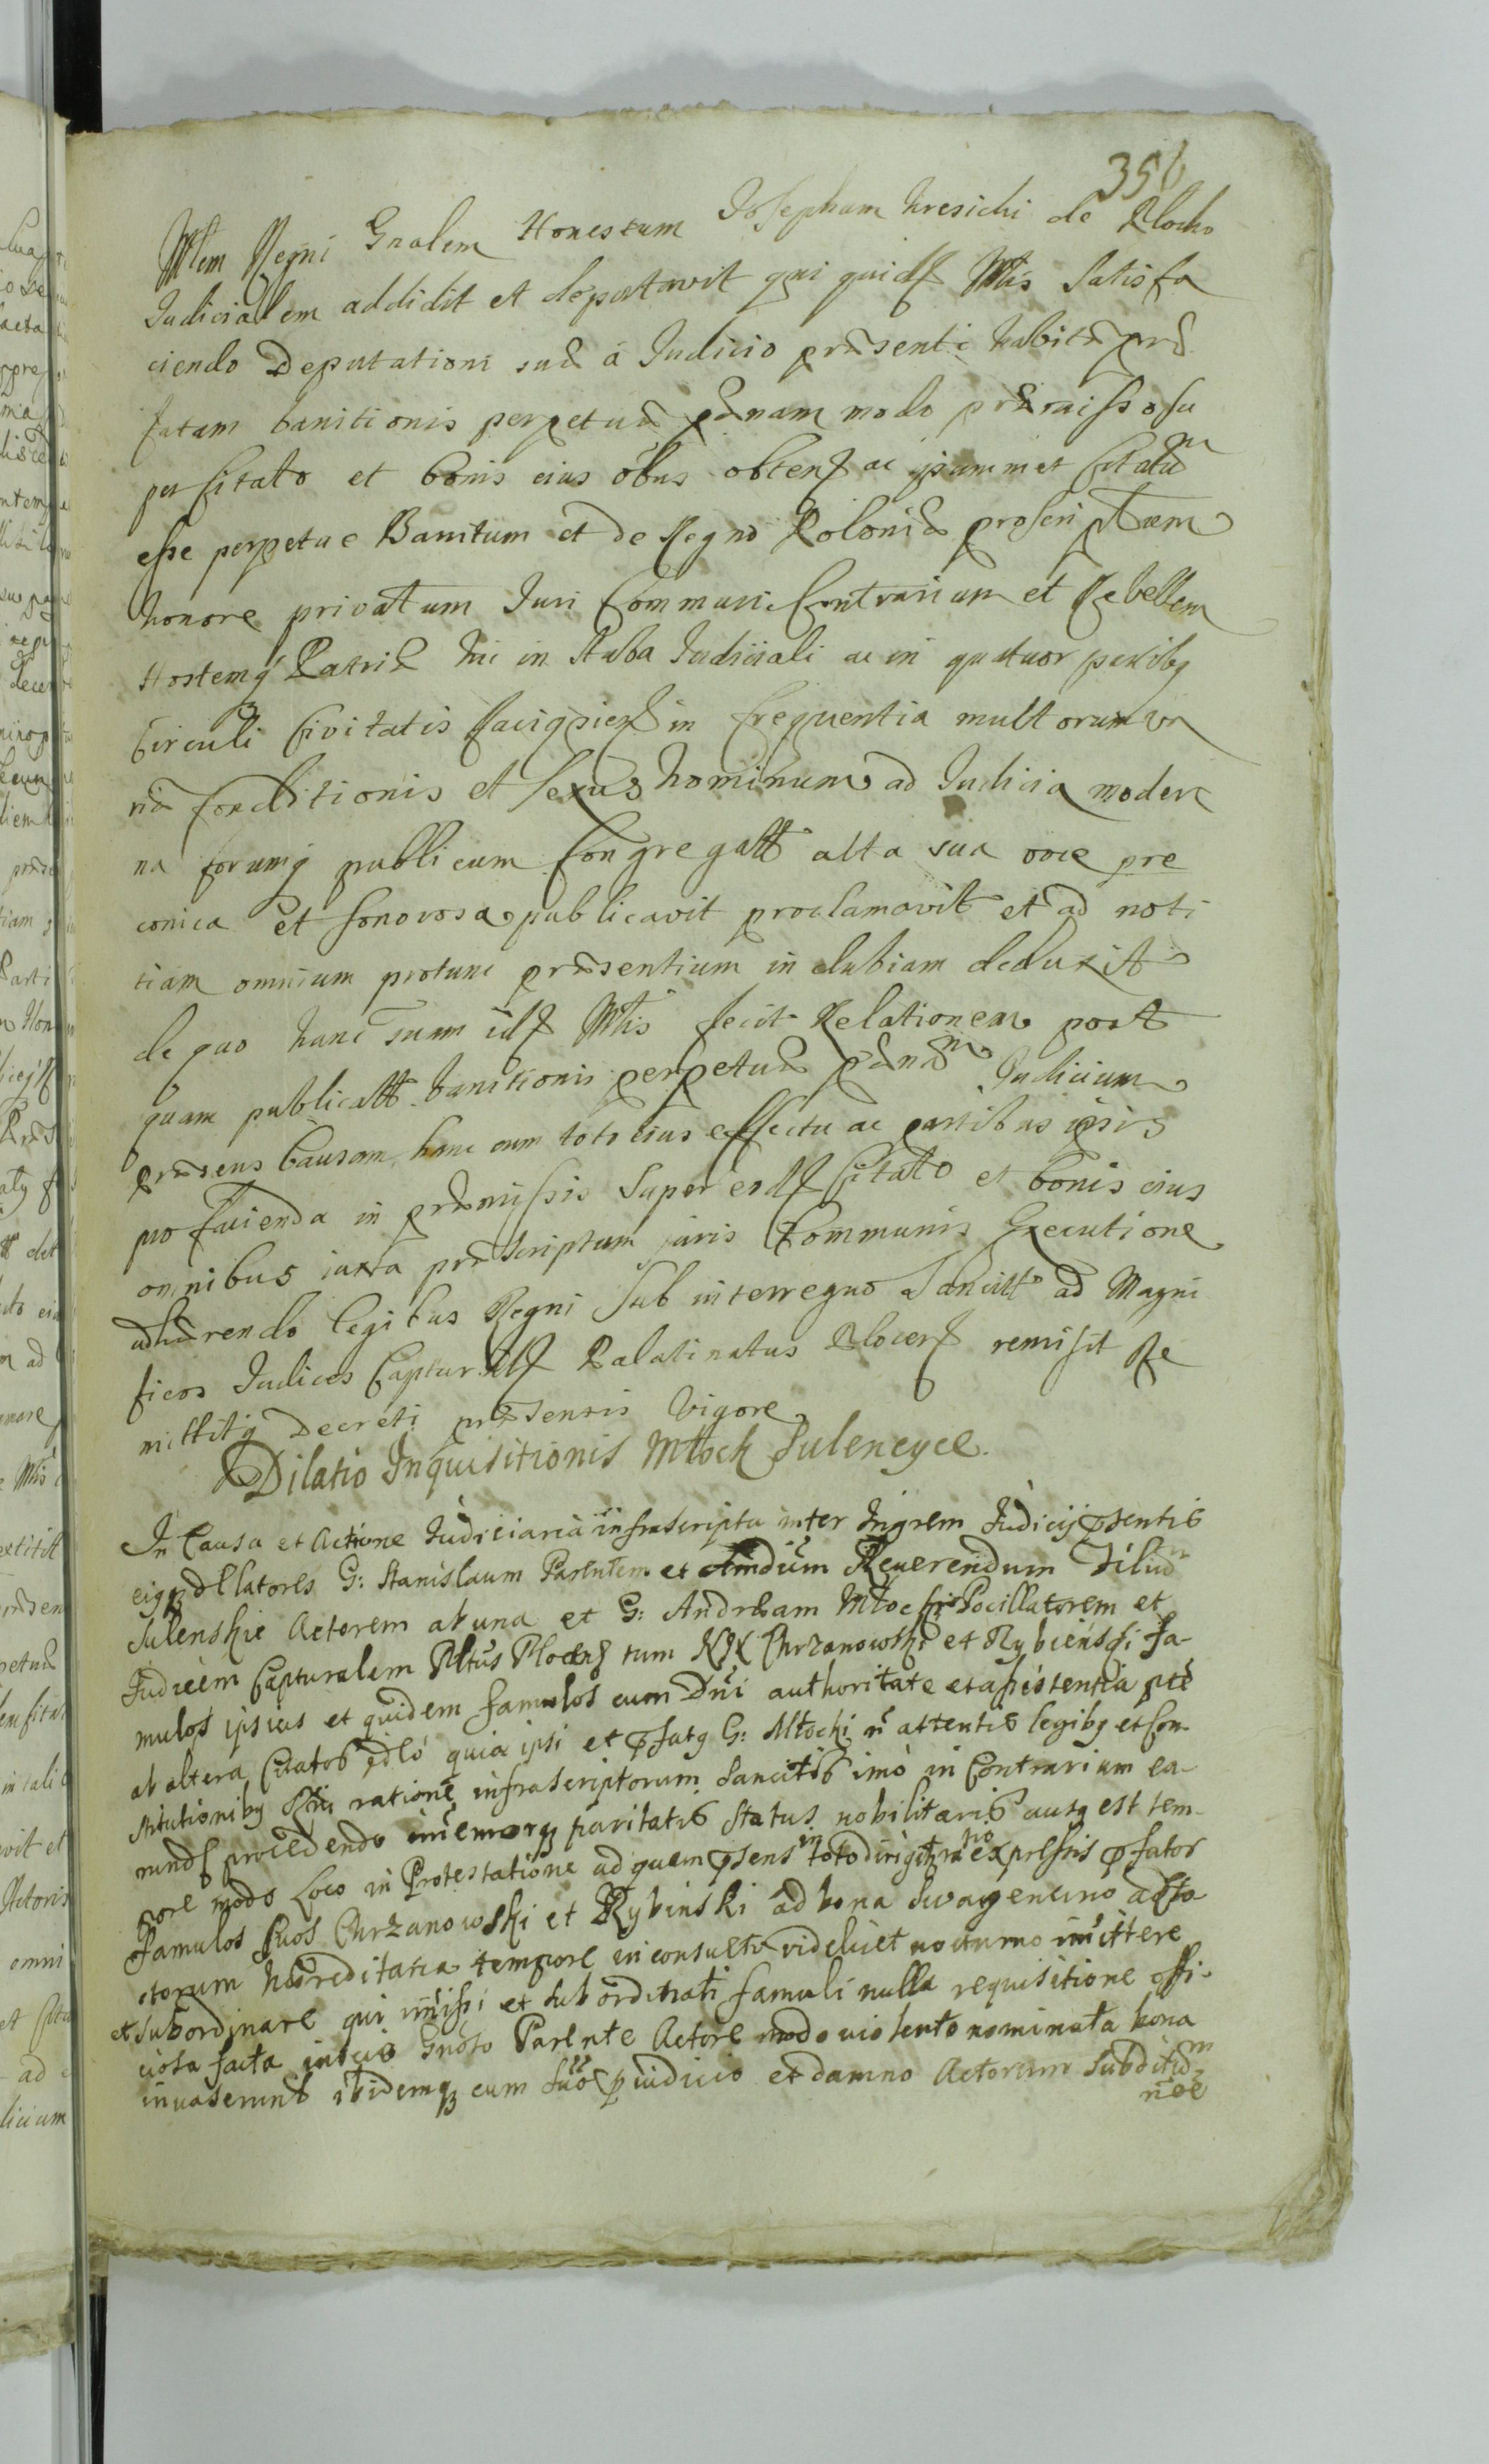 356
Mlem Regni Gnalem Honestum Josephum Kresichi de Plocko
Judicialem addidit et deputavit qui quid Mlis Satisfa
ciendo Deputationi suæ á Judicio præsenti habitæ præ
fatam banitionis perpetuæ pænam modo præmisso su
per Citato et bonis eius obus obten ac ipsummet Citatum
esse perpetue Banitum et de Regno Poloniæ proscriptum
honore privatum Juri Communi Contrarium et Rebellem
Hostemq Patriæ hic in stuba Judiciali ac in quatuor partibq
Circuli Civitatis in frequentia multorum va
riæ Conditionis et Sexus hominum ad Judicia moder
na forumq publicum Congregatt alta sua voce pre
conica et sonorosa publicavit proclamavit et ad noti
tiam omnium protunc præsentium in dubiam deduxit
de quo hanc suam id Mlis fecit Relationem post
quam publicatt banitionis perpetuæ pænam Judicium
præsens Causam hanc cum toto eius effectu ac partibus ipsis
pro facienda in præmissis Super eod Citato et bonis eius
omnibus iuxta præscriptum juris Communis Executione
adhærendo legibus Regni Sub interregno Sancitt ad Magni
ficos Judices Captural Palatinatus Plocen remisit Re
mittitq Decreti præsentis Vigore
Dilatio Inquisitionis Młock Sulencyce.
In Causa et Actione Judiciaria infrascripta inter Jngrem Judicij psentis
eiqz dellatores G: Stanislaum Parentem et Amdum Reuerendum Filium
Sulenskie Actorem ab una et G: Andream Młocki Pocillatorem et
Judicem Capturalem Pltus Plocens tum NN Chrzanowski et Rybienski Fa-
mulos ipsius et quidem famulos cum Dni authoritate et assistentia pte
ab altera Citatos idló quia ipsi et pfatq G: Młocki n attentis legibq et Con-
stitutionibq Rni ratione infrascriptorum Sancitis imò in Contrarium ea-
rund procedendo inemorqz paritatis status nobilitaris ausq est tem-
pore modo Loco in Protestatione ad quam psens in toto dirigitur expressis pfator
famulos suos Chrzanowski et Rybinski ad bona Swagencino acto
ctorum hæreditaria tempore inconsulto videlicet nocturno imittere
et subordinare qui imissi et subordinati famuli nulla requisitione offi-
ciosa facta inscio Gnoso Parente Actore modo violento nominata bona
invaserunt ibidemqz cum suo piudicio et damno Actorum Subditum
noe